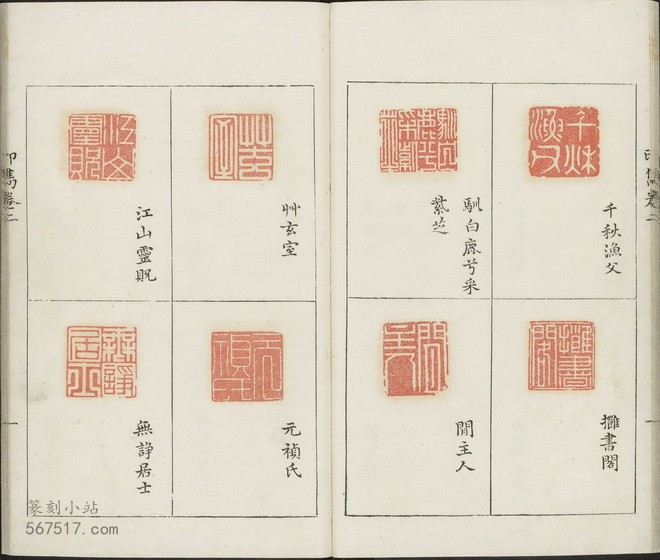 千秋漁父
馴白鹿兮采
紫芝
攤書閣
閒主人
艸玄室
江山靈貺
元禎氏
無諍居士
印雋卷二
一
篆刻小站
567517.com